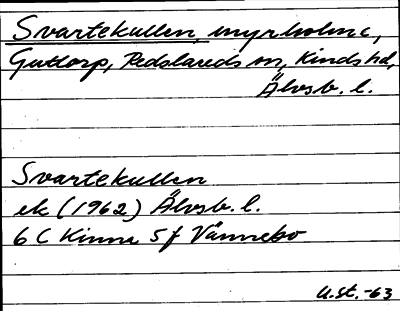 Svartekullen, myrholme,
Guttorp, Redslareds sn, Kinds hd,
Älvsb. l.
Svartekullen
ek (1962) Älvsb. l.
6 C Kinna 5 f Vännebo
U.st. -63